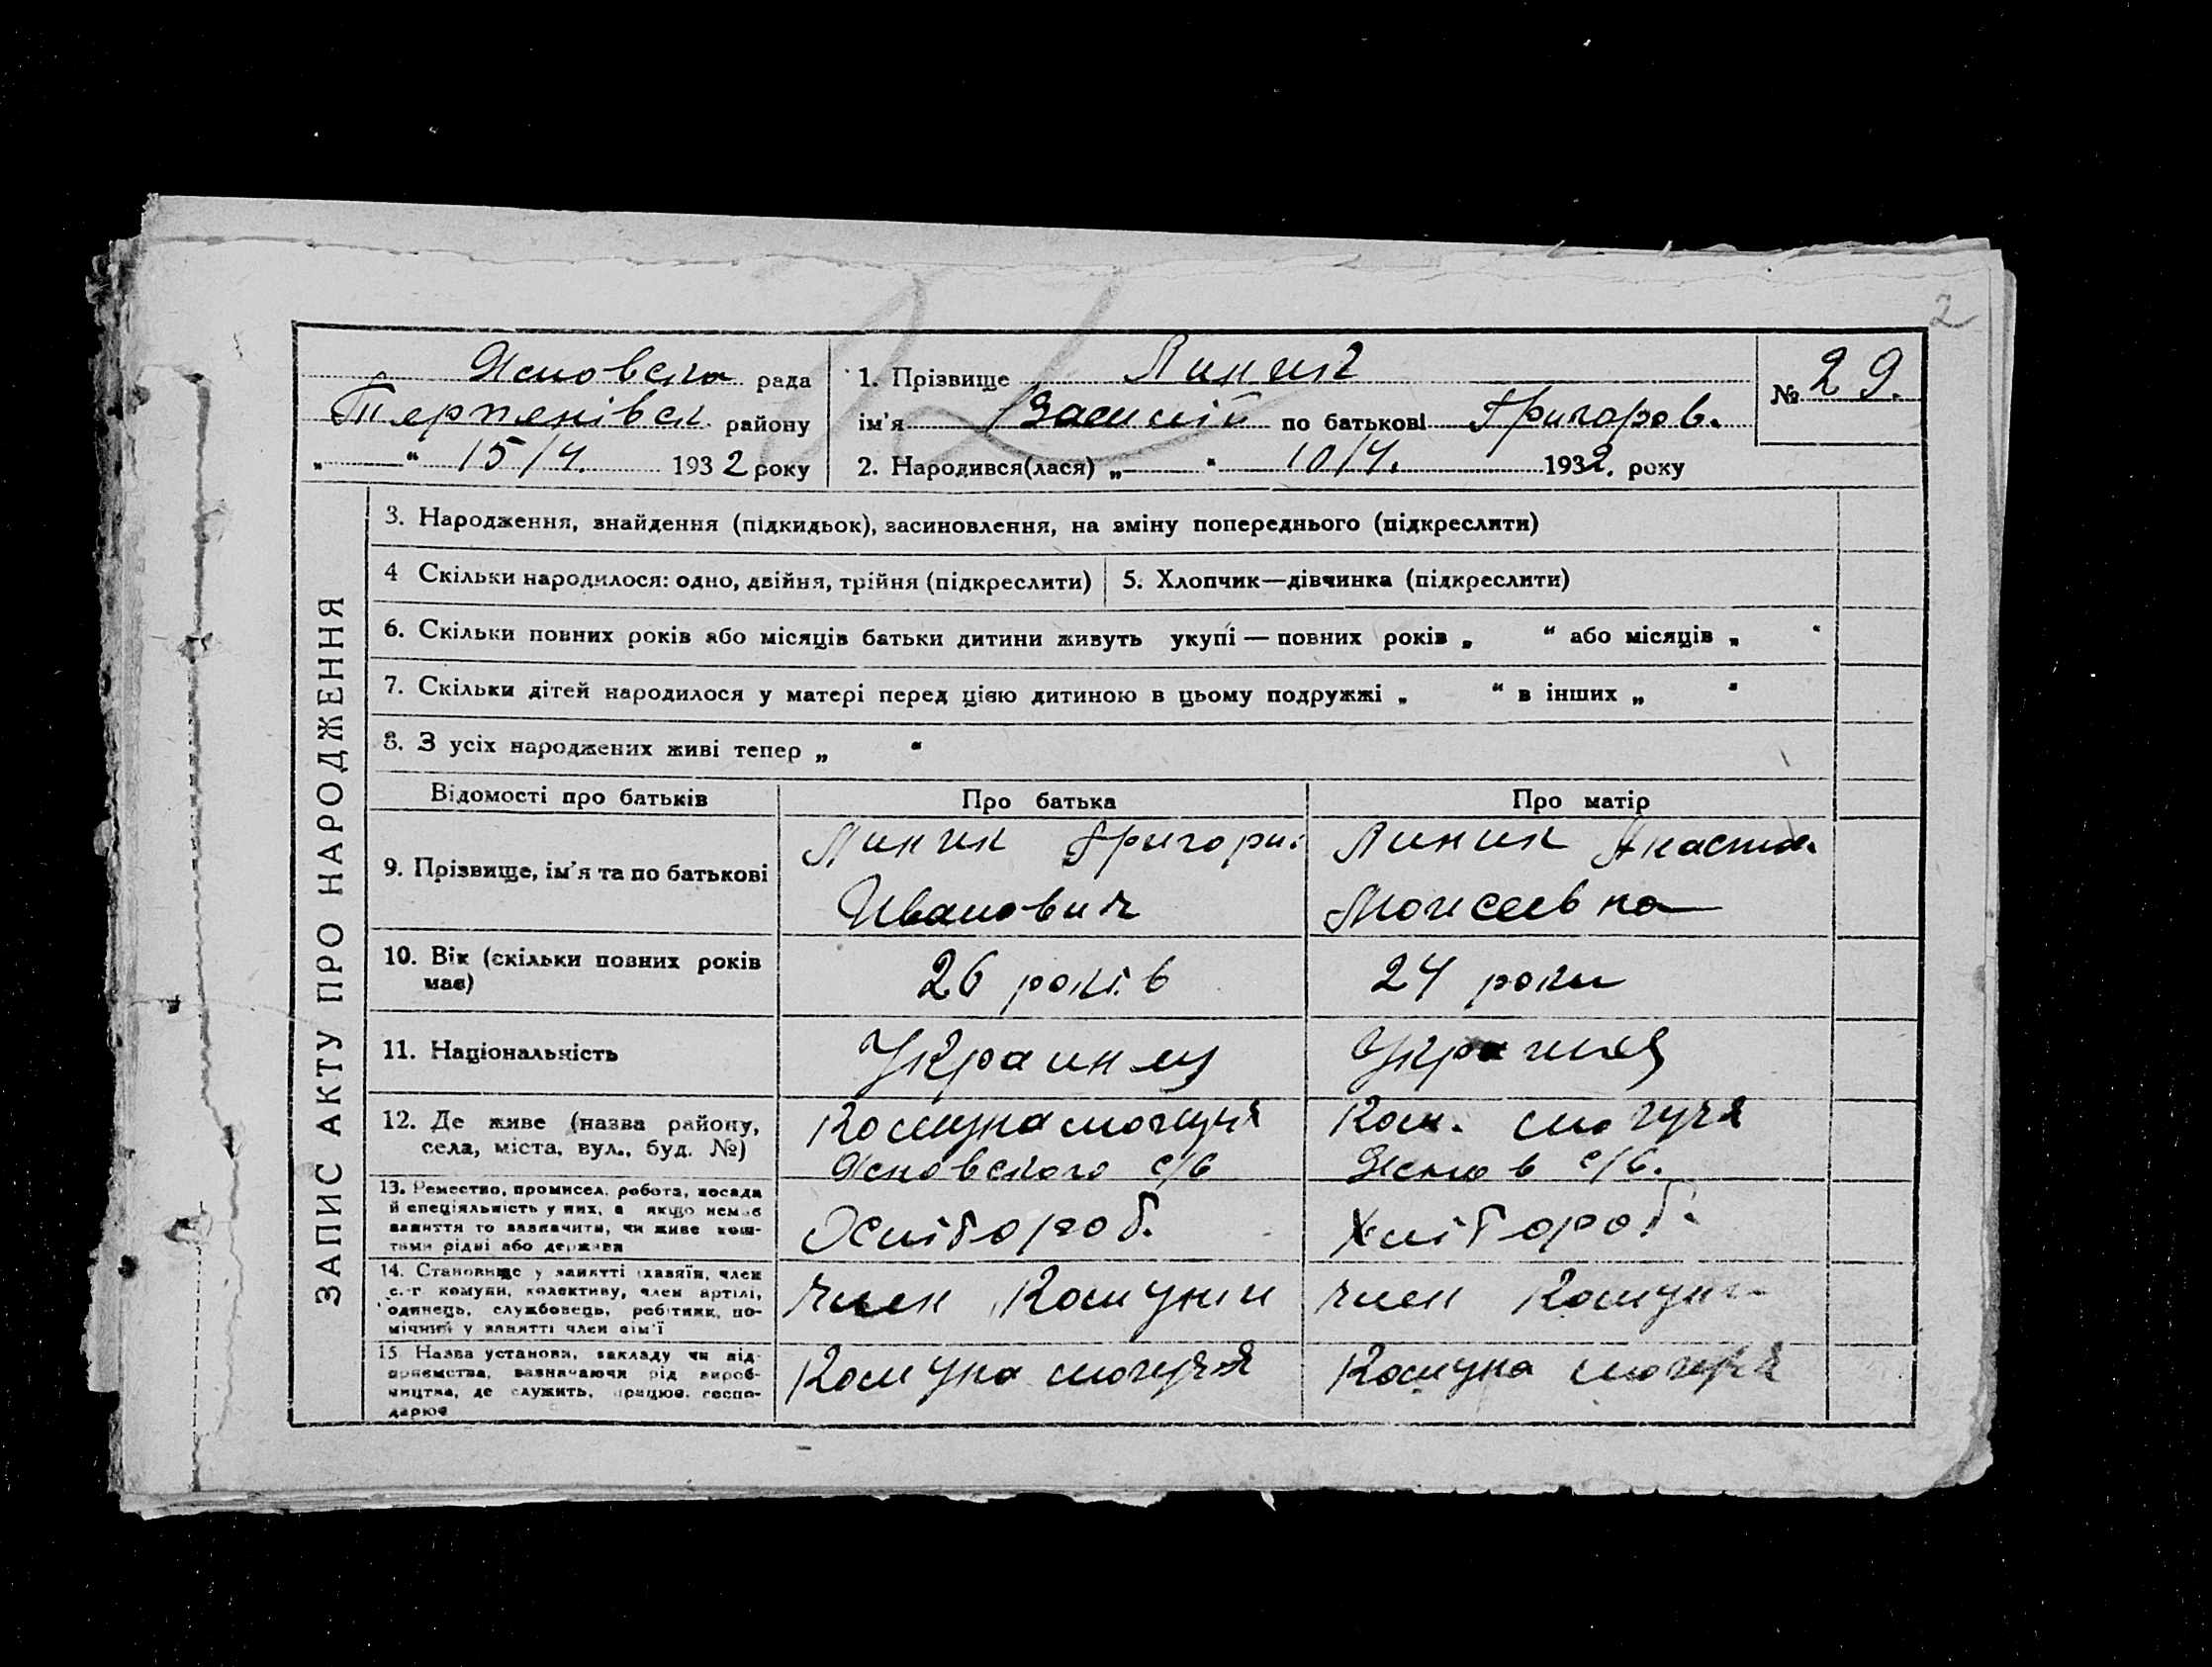 2
Ясновська рада
Терпенівськ. району
„ “ 15/4. 1932 року
1. Прізвище Линик
ім'я Василій по батькові Григоров.
2. Народився(лася) „ “ 10/4. 1932. року
№ 29.
ЗАПИС АКТУ ПРО НАРОДЖЕННЯ
3. Народження, знайдення (підкидьок), засиновлення, на зміну попереднього (підкреслити)
4 Скільки народилося: одно, двійня, трійня (підкреслити)
5. Хлопчик—дівчинка (підкреслити)
6. Скільки повних років або місяців батьки дитини живуть укупі — повних років „ “ або місяців „ “
7. Скільки дітей народилося у матері перед цією дитиною в цьому подружжі „ “ в інших „ “
8. З усіх народжених живі тепер „ “
Відомості про батьків
Про батька
Про матір
9. Прізвище, ім'я та по батькові
Линик Григори
Иванович
Линик
Моисеевна
10. Вік (скільки повних років
має)
26 років
24 роки
11. Національність
Украинц
12. Де живе (назва району,
села, міста, вул., буд. №)
Комуна могучя
Ясновского с/б
Ком. могучя
Яснов с/б.
13. Ремество, промисел, робота, посада
й спеціяльність у них, а якщо немає
заняття то зазначити, чи живе кош-
тами рідні або держави
Хлібороб.
Хлібороб.
14. Становище у занятті (хазяїн, член
с.-г комуни, колективу, член артілі,
одинець, службовець, робітник, по-
мічний у занятті член сім'ї
Член Комуни
Член Комуни
15. Назва установи, закладу чи під-
приємства, зазначаючи рід вироб-
ництва, де служить, працює, госпо-
дарює
Комуна могучя
Комуна могучя